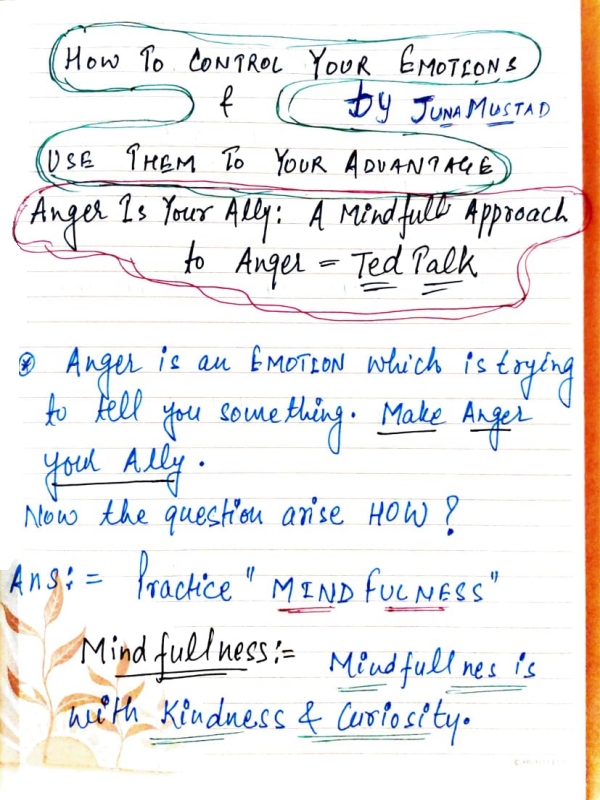 HOW TO CONTROL YOUR EMOTIONS
& by JUNA MUSTAD
USE THEM TO YOUR ADVANTAGE
Anger Is Your Ally: A Mindfull Approach
to Anger = Ted Talk
Anger is an EMOTION which is trying
to tell you something. Make Anger
your Ally.
Now the question arise HOW ?
Ans:= Practice "MINDFULNESS"
Mindfullness:= Mindfullnes is
with Kindness & Curiosity.